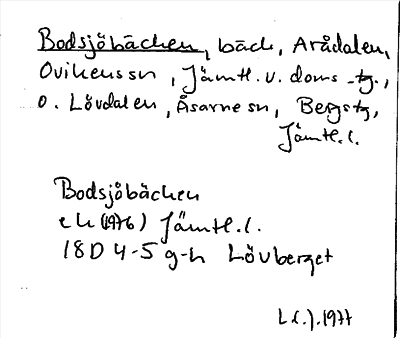 Bodsjöbäcken, bäck, Arådalen,
Ovikens sn, Jämtl. v. doms.-tg.,
o. Lövdalen, Åsarne sn, Bergs tg,
Jämtl. l.
Bodsjöbäcken
ek (1976) Jämtl. l.
18D 4-5 g-h Lövberget
1977